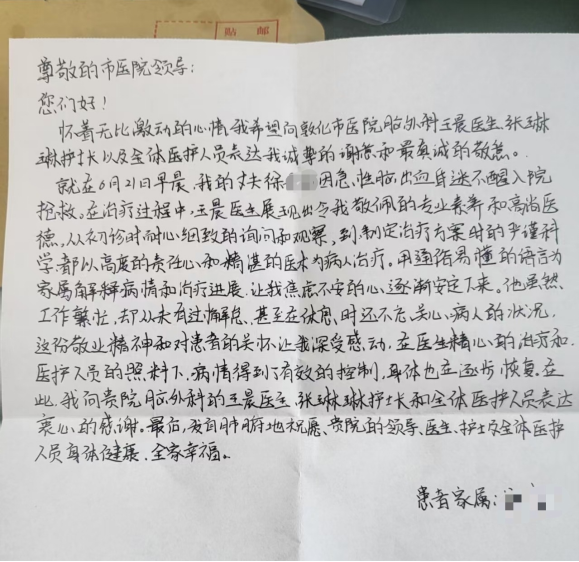 贴 邮
尊敬的市医院领导:
您们好!
怀着无比激动的心情,我希望向敦化市医院脑外科王晨医生、张琳
琳护士长以及全体医护人员表达我诚挚的谢意和最真诚的敬意。
就在6月21日早晨,我的丈夫徐 因急性脑出血昏迷不醒入院
抢救。在治疗过程中,王晨医生展现出令我敬佩的专业素养和高尚医
德,从初诊时耐心细致的询问和观察,到制定治疗方案时的严谨科
学都以高度的责任心和精湛的医术为病人治疗。用通俗易懂的语言为
家属解释病情和治疗进展,让我焦虑不安的心逐渐安定下来。他虽然
工作繁忙,却从未有过懈怠,甚至在休息时还不忘关心病人的状况,
这份敬业精神和对患者的关怀让我深受感动,在医生精心的治疗和
医护人员的照料下,病情得到了有效的控制,身体也在逐步恢复。在
此,我向贵院脑外科的王晨医生、张琳琳护士长和全体医护人员表达
衷心的感谢。最后,发自肺腑地祝愿、贵院的领导、医生、护士及全体医护
人员身体健康、全家幸福。
患者家属: